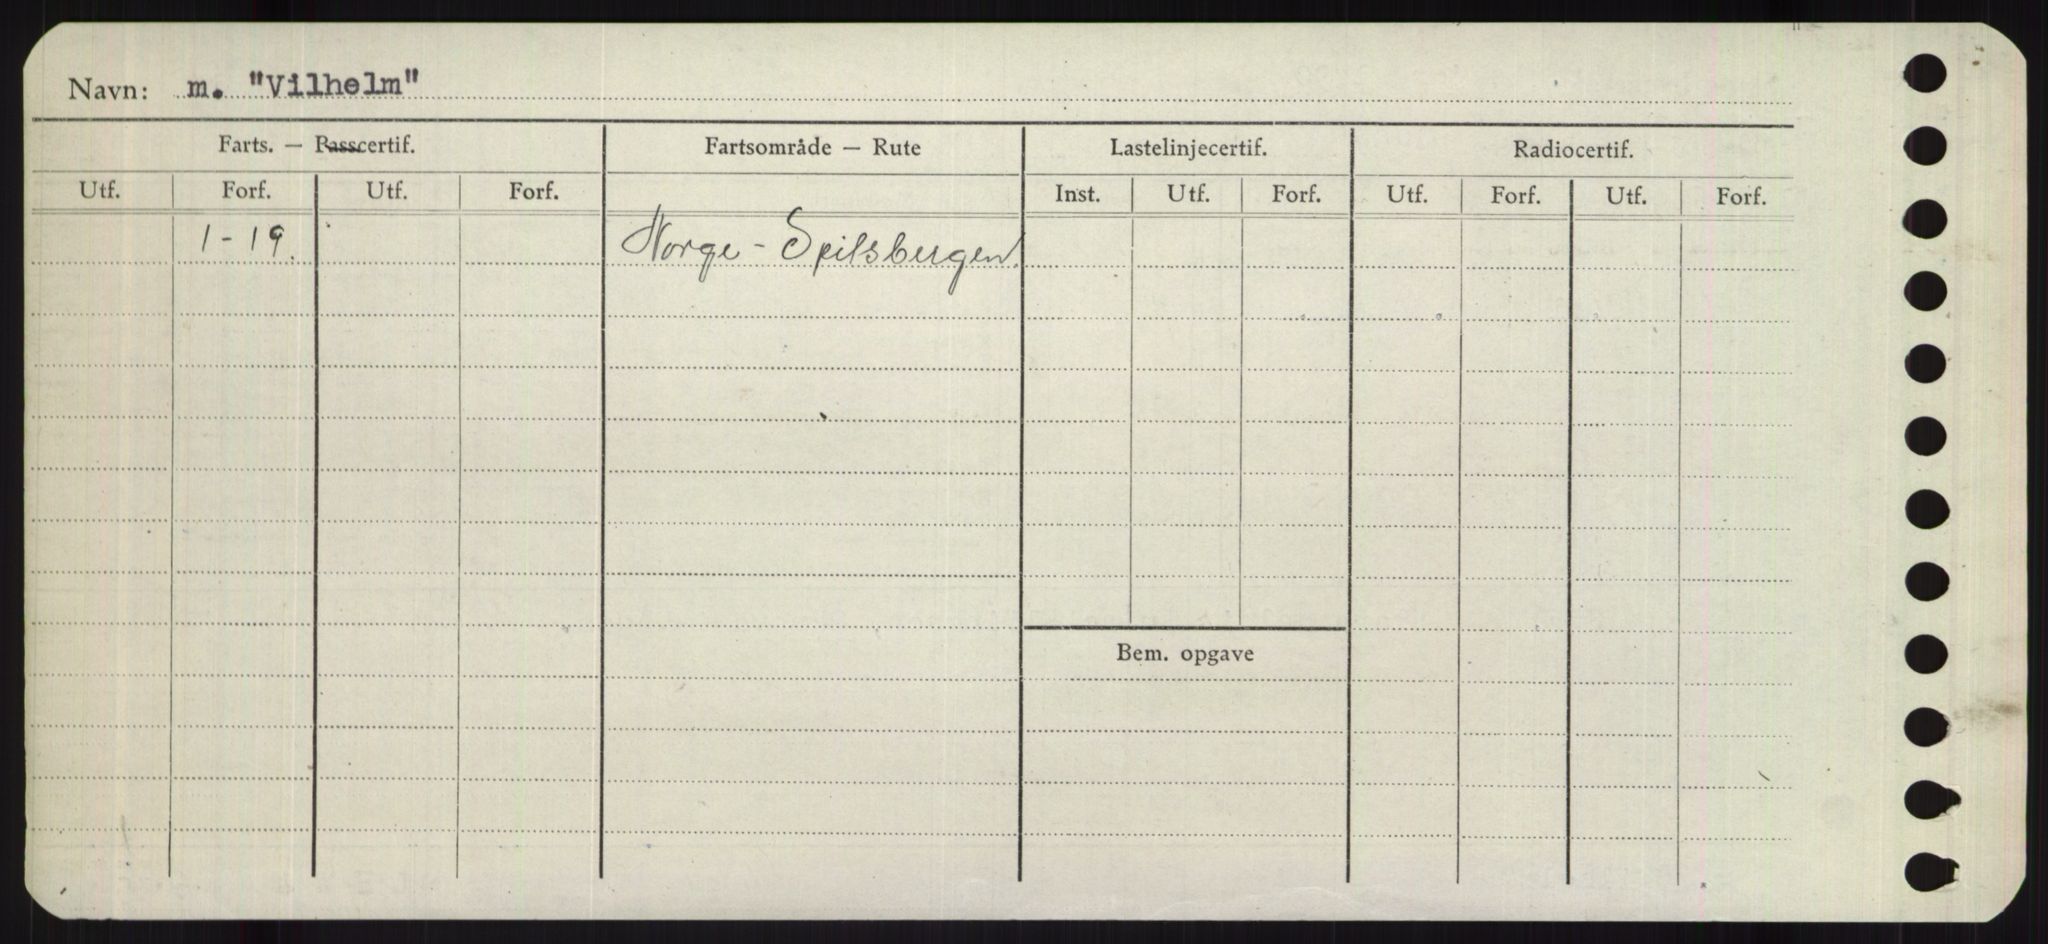 Navn: m. "Vilhelm"
Farts. — Passcertif. Fartsområde — Rute Lastelinjecertif. Radiocertif.
Utf. Forf. Utf. Forf. Inst. Utf. Forf. Utf. Forf. Utf. Forf.
1-19. Norge - Spitsbergen.
Bem. opgave